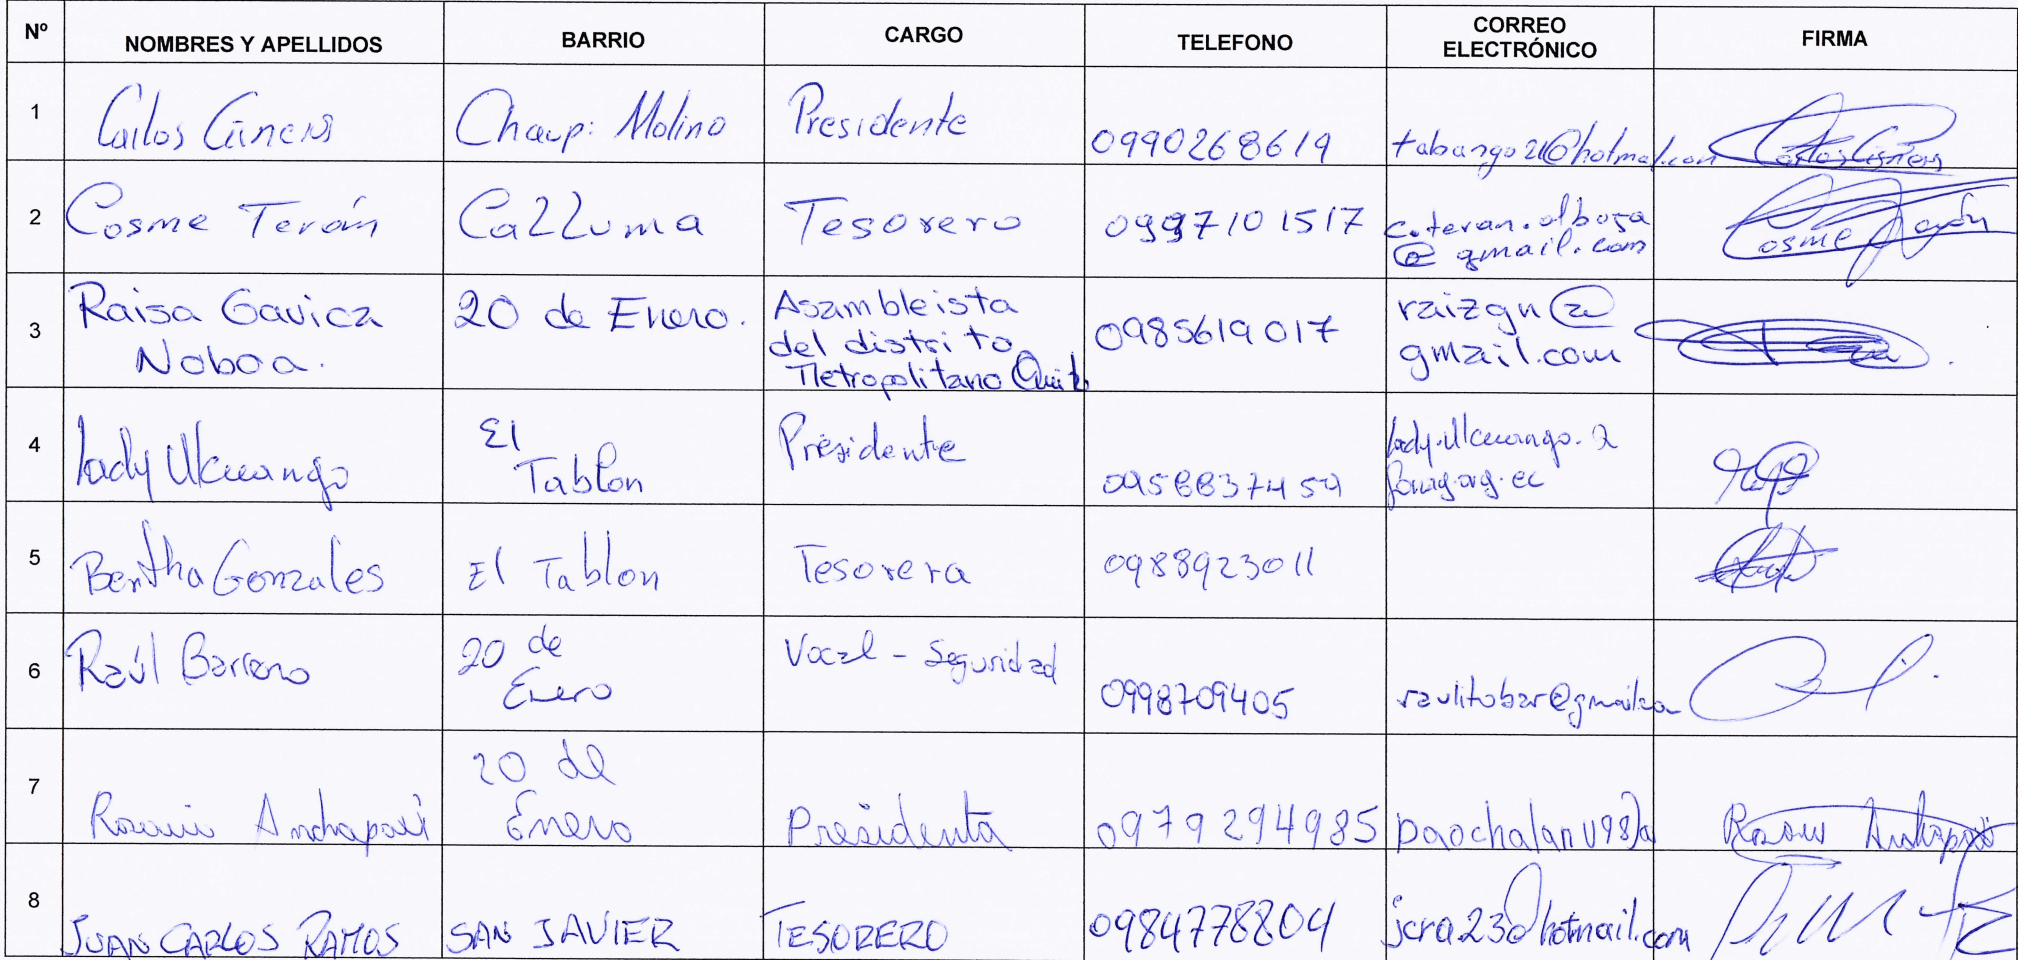 Nº NOMBRES Y APELLIDOS BARRIO CARGO TELEFONO CORREO ELECTRÓNICO FIRMA
1 Carlos Chaupi Molino Presidente 0990268619 tabango21@hotmail.com
2 Cosme Terán Calluma Tesorero 0997101517 c.teran.alboza
@gmail.com Cosme Terán
3 Raisa Gavica
Noboa. 20 de Enero. Asambleista
del distrito
Metropolitano Quito 0985619017 raizgn@
gmail.com
4 Lady Ulcuango El
Tablon Presidente 0958837459 lady.ulcuango.2
5 Bertha Gonzales El Tablon Tesorera 0988923011
6 Raúl Barreno 20 de
Enero Vocal - Seguridad 0998709405 raulitobar@gmail.co
7 20 de
Enero Presidenta 0979294985
8 JUAN CARLOS RAMOS SAN JAVIER TESORERO 0984778804 jcra23@hotmail.com